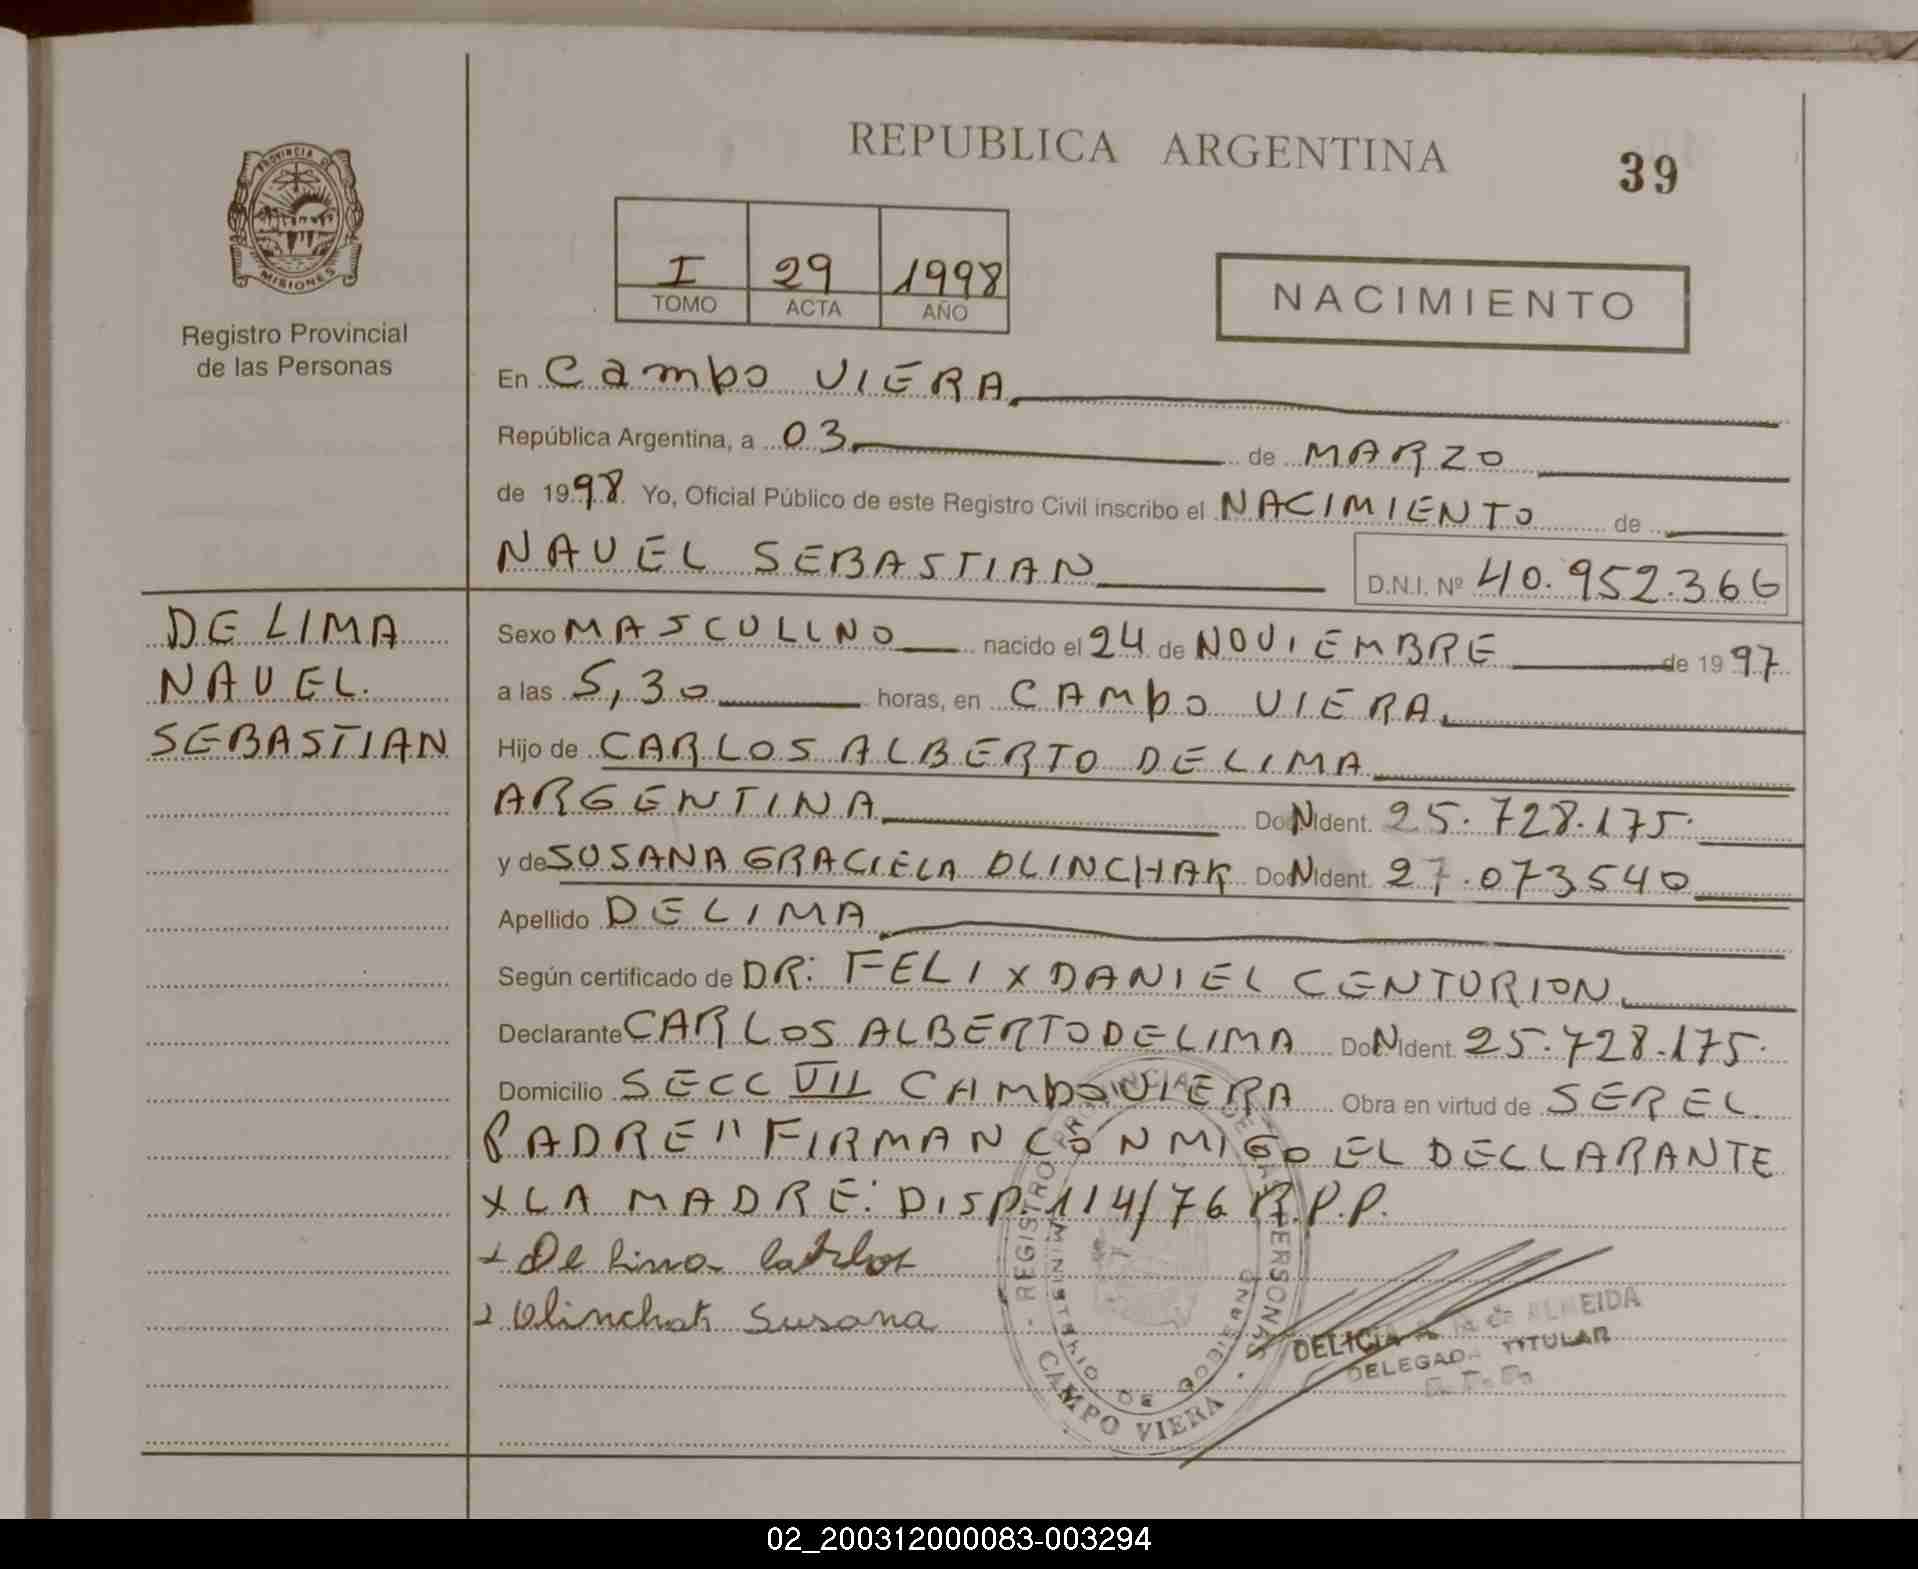 REPUBLICA ARGENTINA
39
PROVINCIA DE
MISIONES
Registro Provincial
de las Personas
I 29 1998
TOMO ACTA AÑO
NACIMIENTO
En Campo VIERA
República Argentina, a 03 de MARZO
de 1998 Yo, Oficial Público de este Registro Civil inscribo el NACIMIENTO de
NAUEL SEBASTIAN D.N.I. Nº 40.952.366
DE LIMA
NAUEL.
SEBASTIAN
Sexo MASCULINO nacido el 24 de NOVIEMBRE de 1997
a las 5,30 horas, en CAMPO VIERA
Hijo de CARLOS ALBERTO DE LIMA
ARGENTINA DocNIdent. 25.728.175.
y de SUSANA GRACIELA OLINCHAK DocNIdent. 27.073540
Apellido DE LIMA
Según certificado de DR: FELIX DANIEL CENTURION
Declarante CARLOS ALBERTO DE LIMA DocNIdent. 25.728.175.
Domicilio SECC VII CAMPO VIERA Obra en virtud de SER EL
PADRE" FIRMAN CONMIGO EL DECLARANTE
X LA MADRE: DISP. 114/76 R.P.P.
De Lima Carlos
Olinchak Susana
REGISTRO PROVINCIAL DE LAS PERSONAS
MINISTERIO DE GOBIERNO
CAMPO VIERA
DELICIA de ALMEIDA
DELEGADA TITULAR
02_200312000083-003294